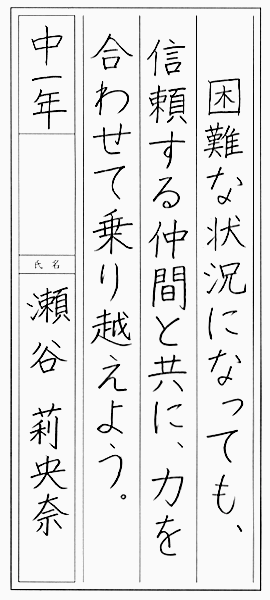 困難な状況になっても、
信頼する仲間と共に、力を
合わせて乗り越えよう。
中一年
氏名
瀬谷 莉央奈